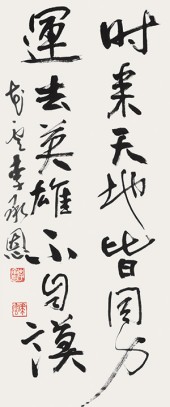 时来天地皆同力
運去英雄不自谋
李承恩